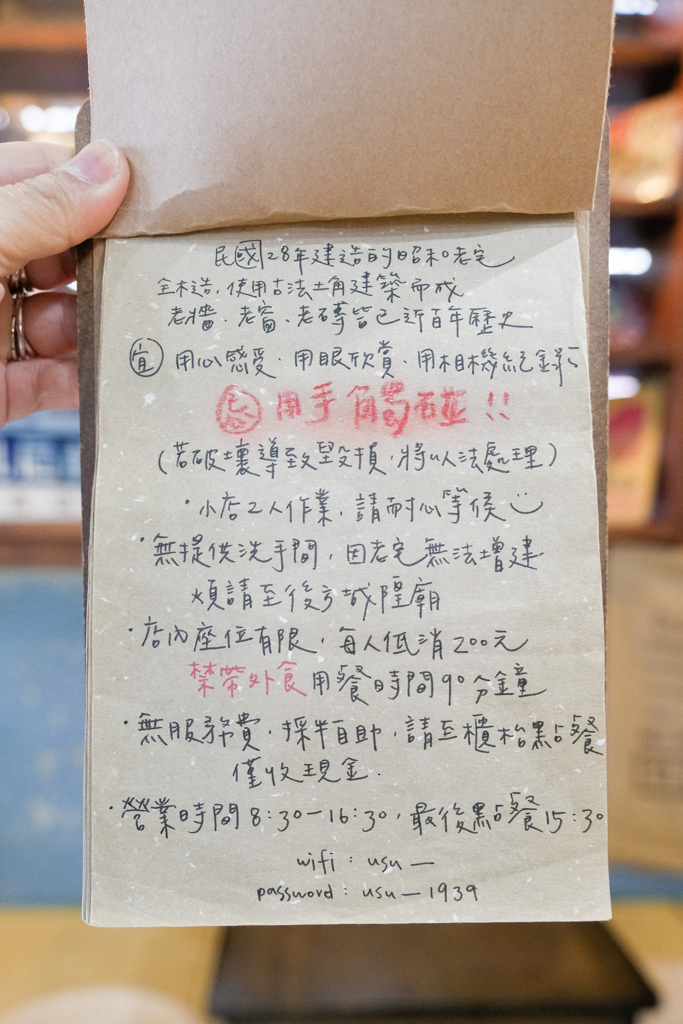 民國28年建造的昭和老宅
全木造,使用古法土角建築而成
老牆、老窗、老磚皆已近百年歷史
宜 用心感受、用眼欣賞、用相機紀錄
忌 用手觸碰!!
(若破壞導致毀損,將以法處理)
·小店2人作業,請耐心等候
·無提供洗手間,因老宅無法增建
煩請至後方城隍廟
·店內座位有限,每人低消200元
禁帶外食 用餐時間90分鐘
·無服務費,採半自助,請至櫃枱點餐
僅收現金.
·營業時間8:30-16:30,最後點餐15:30
wifi:usu—
password:usu—1939